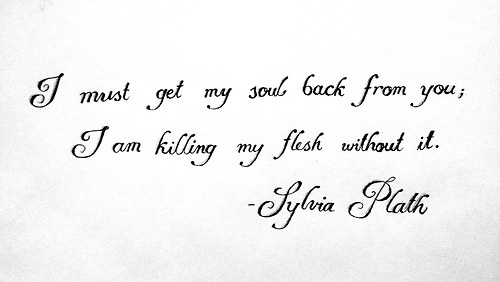 I must get my soul back from you;
I am killing my flesh without it.
-Sylvia Plath